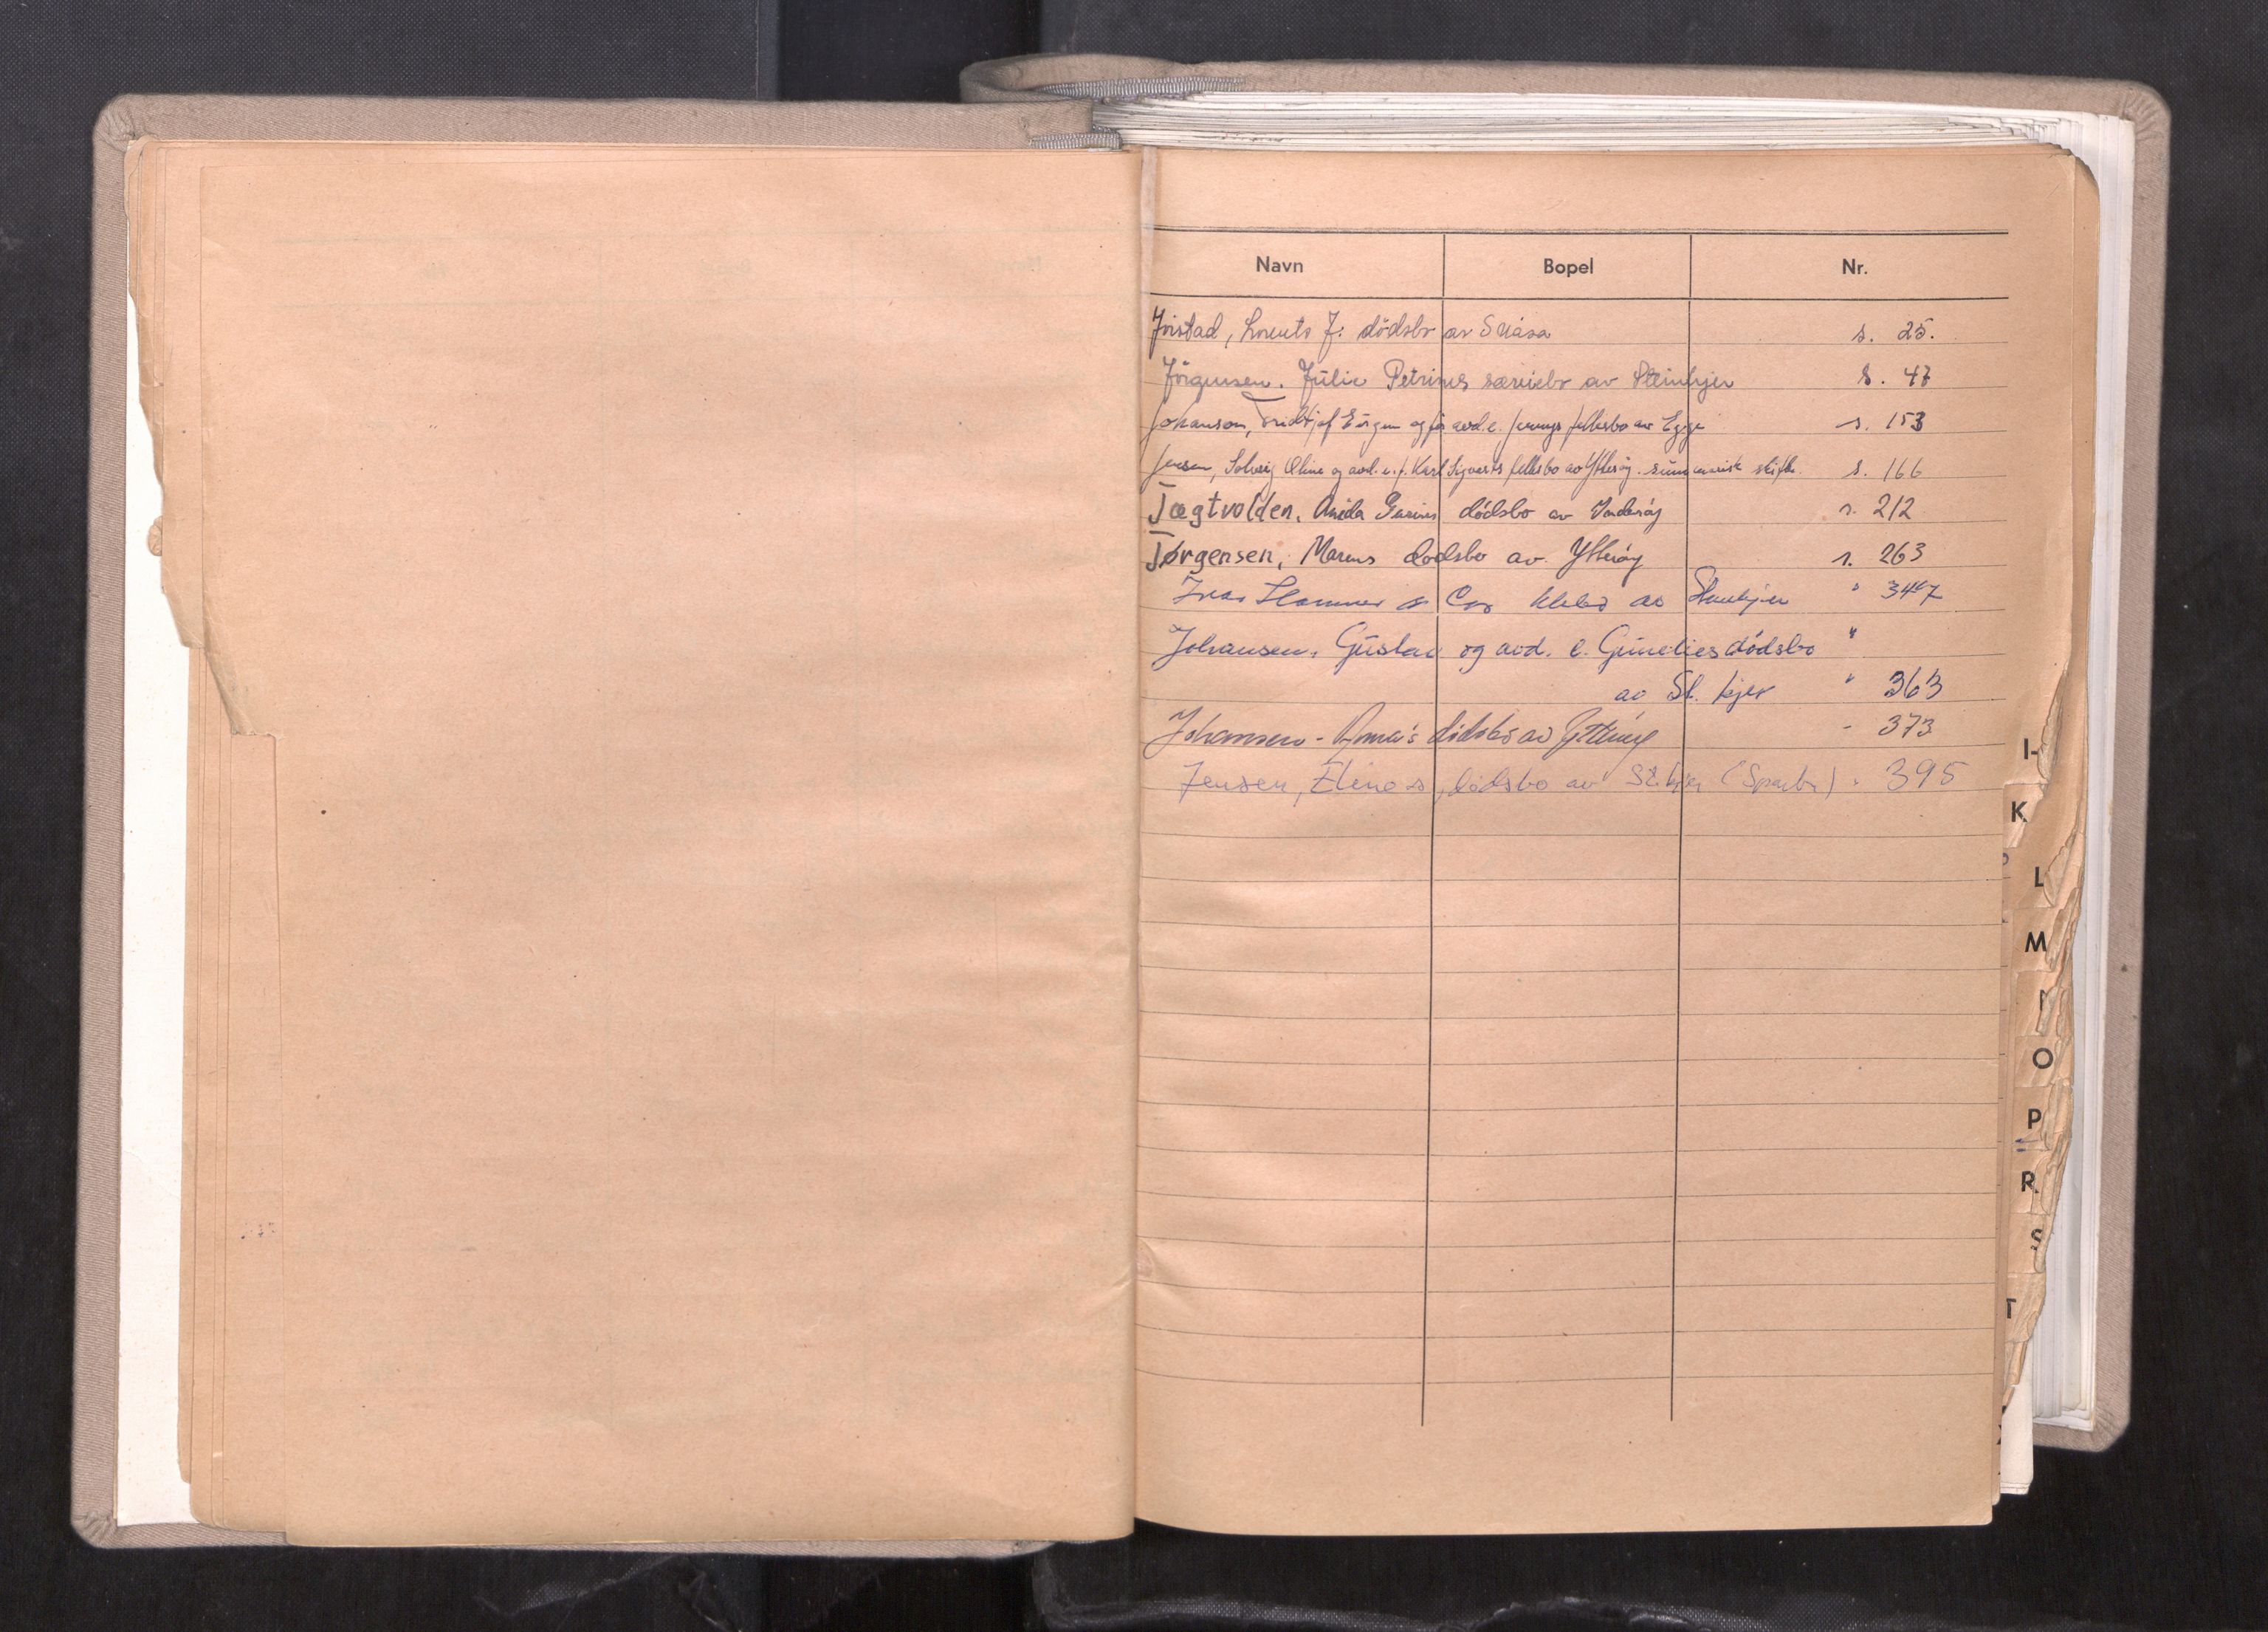 Navn Bopel Nr.
Jørstad, Lorents J: dödsbo av Snåsa s. 25.
Jörgensen. Julie Petrines særeiebo av Steinkjer s. 47
Johanson, Fridtjof Eugen og før avd. e. Jennys fellesbo av Egge s. 153
Jensen, Solveig Oline og avd. e. f. Karl Sigvarts fellesbo av Ytterøy. summarisk skifte. s. 166
Jægtvolden, Anida Gurines dödsbo av Inderøy s. 212
Jørgensen, Marens dødsbo av Ytterøy s. 263
Ivar Hammer & Co av Steinkjer " 347
Johansen, Gustav og avd. e. dödsbo "
av St. kjer " 363
Johansen - Anna's dödsbo av Ytterøy - 373
Jensen, Eline's, dödsbo av St.kjer (Sparbu) " 395
I-
K
L
M
N
O
P
R
S
T